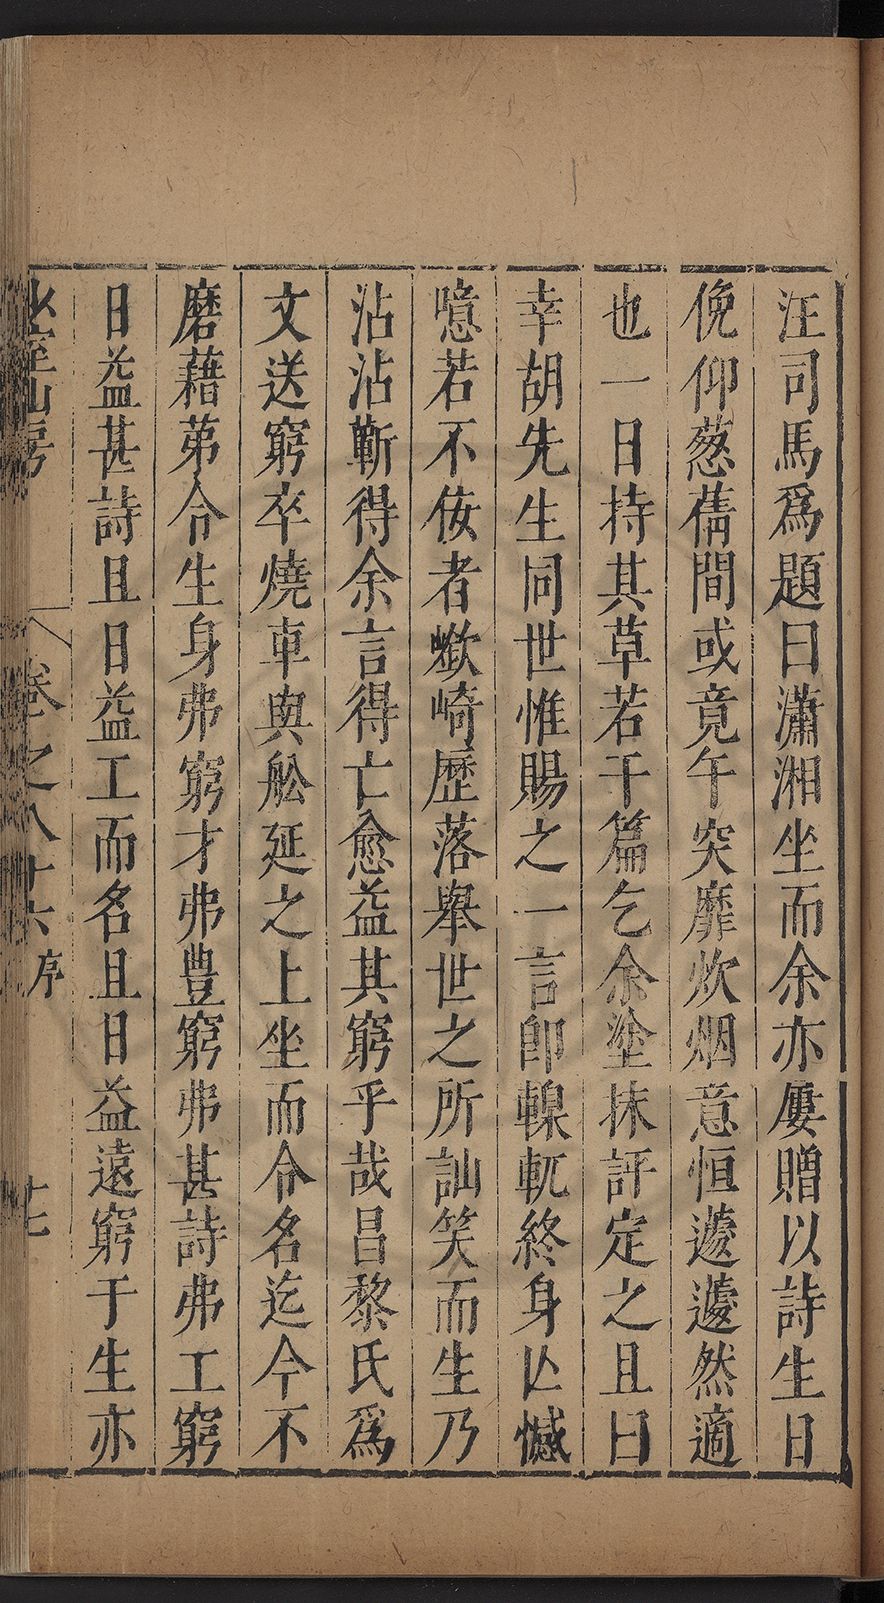 汪司馬爲題曰瀟湘坐而余亦屢贈以詩生日
俛仰葱蒨間或竟午突靡炊烟意恒蘧蘧然適
也一日持其草若干篇乞余塗抹評定之且曰
幸胡先生同世惟賜之一言卽轗軏終身亾憾
噫若不佞者嶔崎歷落舉世之所訕笑而生乃
沾沾蘄得余言得亡愈益其窮乎哉昌黎氏爲
文送窮卒燒車與舩延之上坐而令名迄今不
磨藉苐令生身弗窮才弗豊窮弗甚詩弗工窮
日益甚詩且日益工而名且日益遠窮于生亦
山房
卷之八十六序
十七